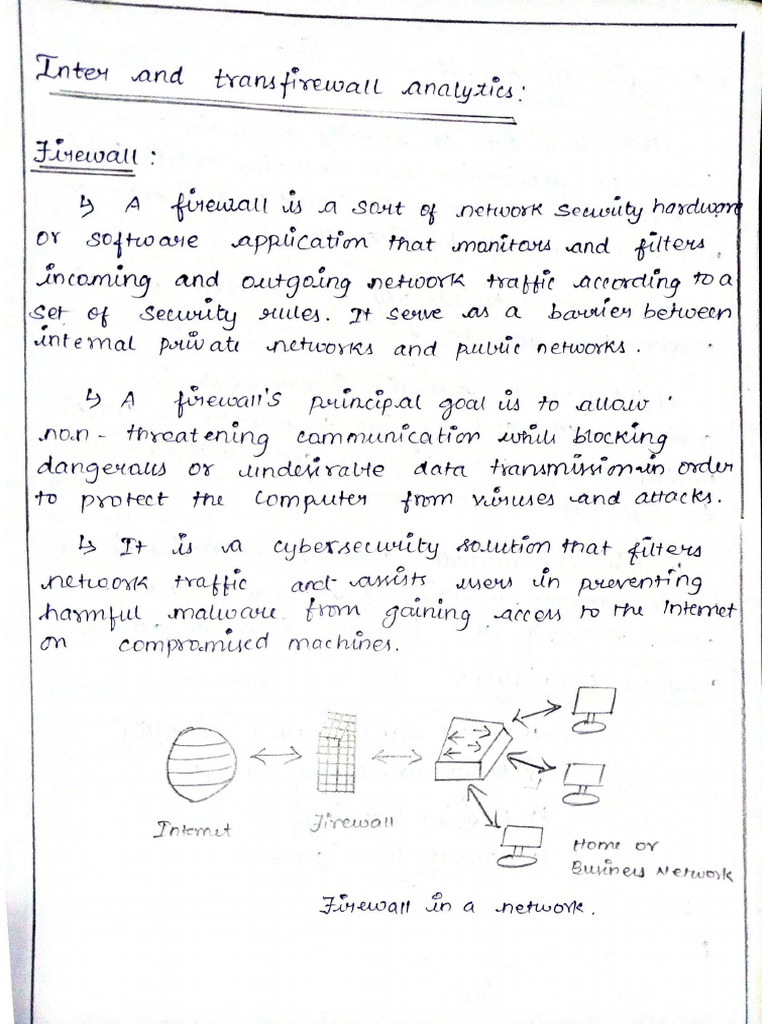 Inter and transfirewall analytics:
Firewall :
↳ A firewall is a sort of network security hardware
or software application that monitors and filters
incoming and outgoing network traffic according to a
set of security rules. It serve as a barrier between
internal private networks and public networks.
↳ A firewall's principal goal is to allow
non-threatening communication while blocking
dangerous or undesirable data transmission in order
to protect the computer from viruses and attacks.
↳ It is a cybersecurity solution that filters
network traffic and assists users in preventing
harmful malware from gaining access to the Internet
on compromised machines.
Internet Firewall
Home or
Business Network
Firewall in a network.